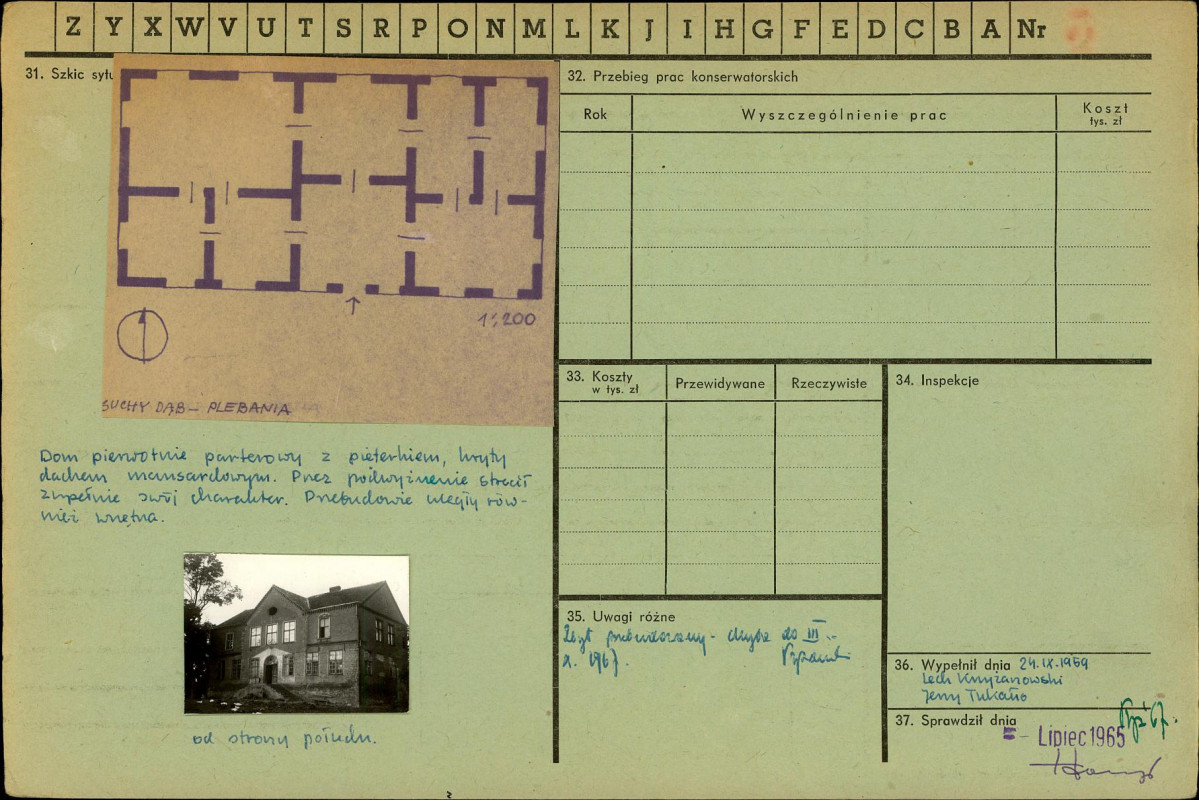 Z Y X W V U T S R P O N M L K J I H G F E D C B A Nr
31. Szkic sytu
1:200
SUCHY DĄB – PLEBANIA
Dom pierwotnie parterowy z pięterkiem, kryty
dachem mansardowym. Przez podwyższenie stracił
zupełnie swój charakter. Przebudowie uległy rów-
nież wnętrza.
od strony połudn.
32. Przebieg prac konserwatorskich
Rok
Wyszczególnienie prac
Koszt
tys. zł
33. Koszty
w tys. zł
Przewidywane
Rzeczywiste
34. Inspekcje
35. Uwagi różne
przebudowany - chyba do III
1967.
36. Wypełnił dnia 24.IX.1959
Lech Krzyżanowski
Jerzy
37. Sprawdził dnia
- Lipiec 1965